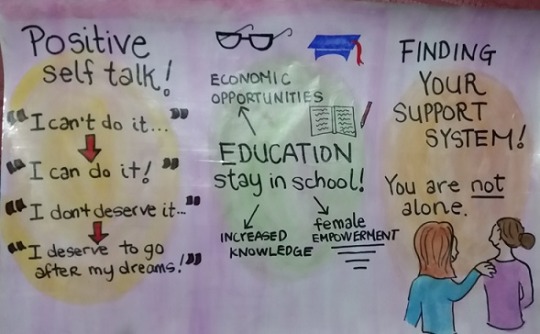 Positive
self talk!
"I can't do it..."
"I can do it!"
"I don't deserve it..."
"I deserve to go
after my dreams!"
ECONOMIC
OPPORTUNITIES
EDUCATION
stay in school!
INCREASED
KNOWLEDGE
female
EMPOWERMENT
FINDING
YOUR
SUPPORT
SYSTEM!
You are not
alone.